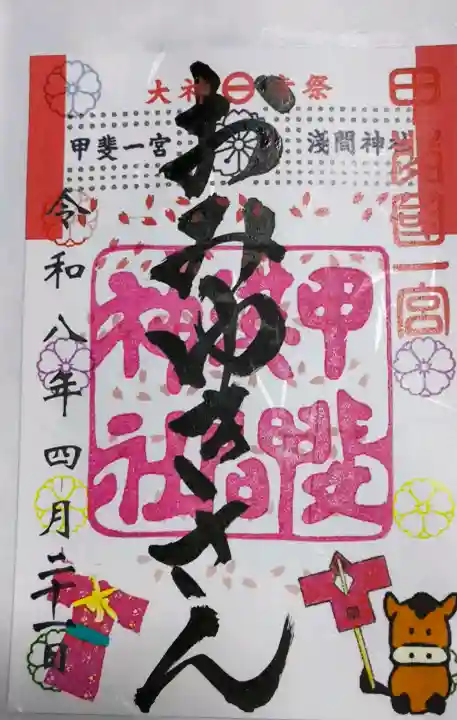 大神 幸祭
甲斐國一宮
甲斐一宮
淺間神社
おみゆきさん
甲斐
淺間
神社
令和八年四月二十一日